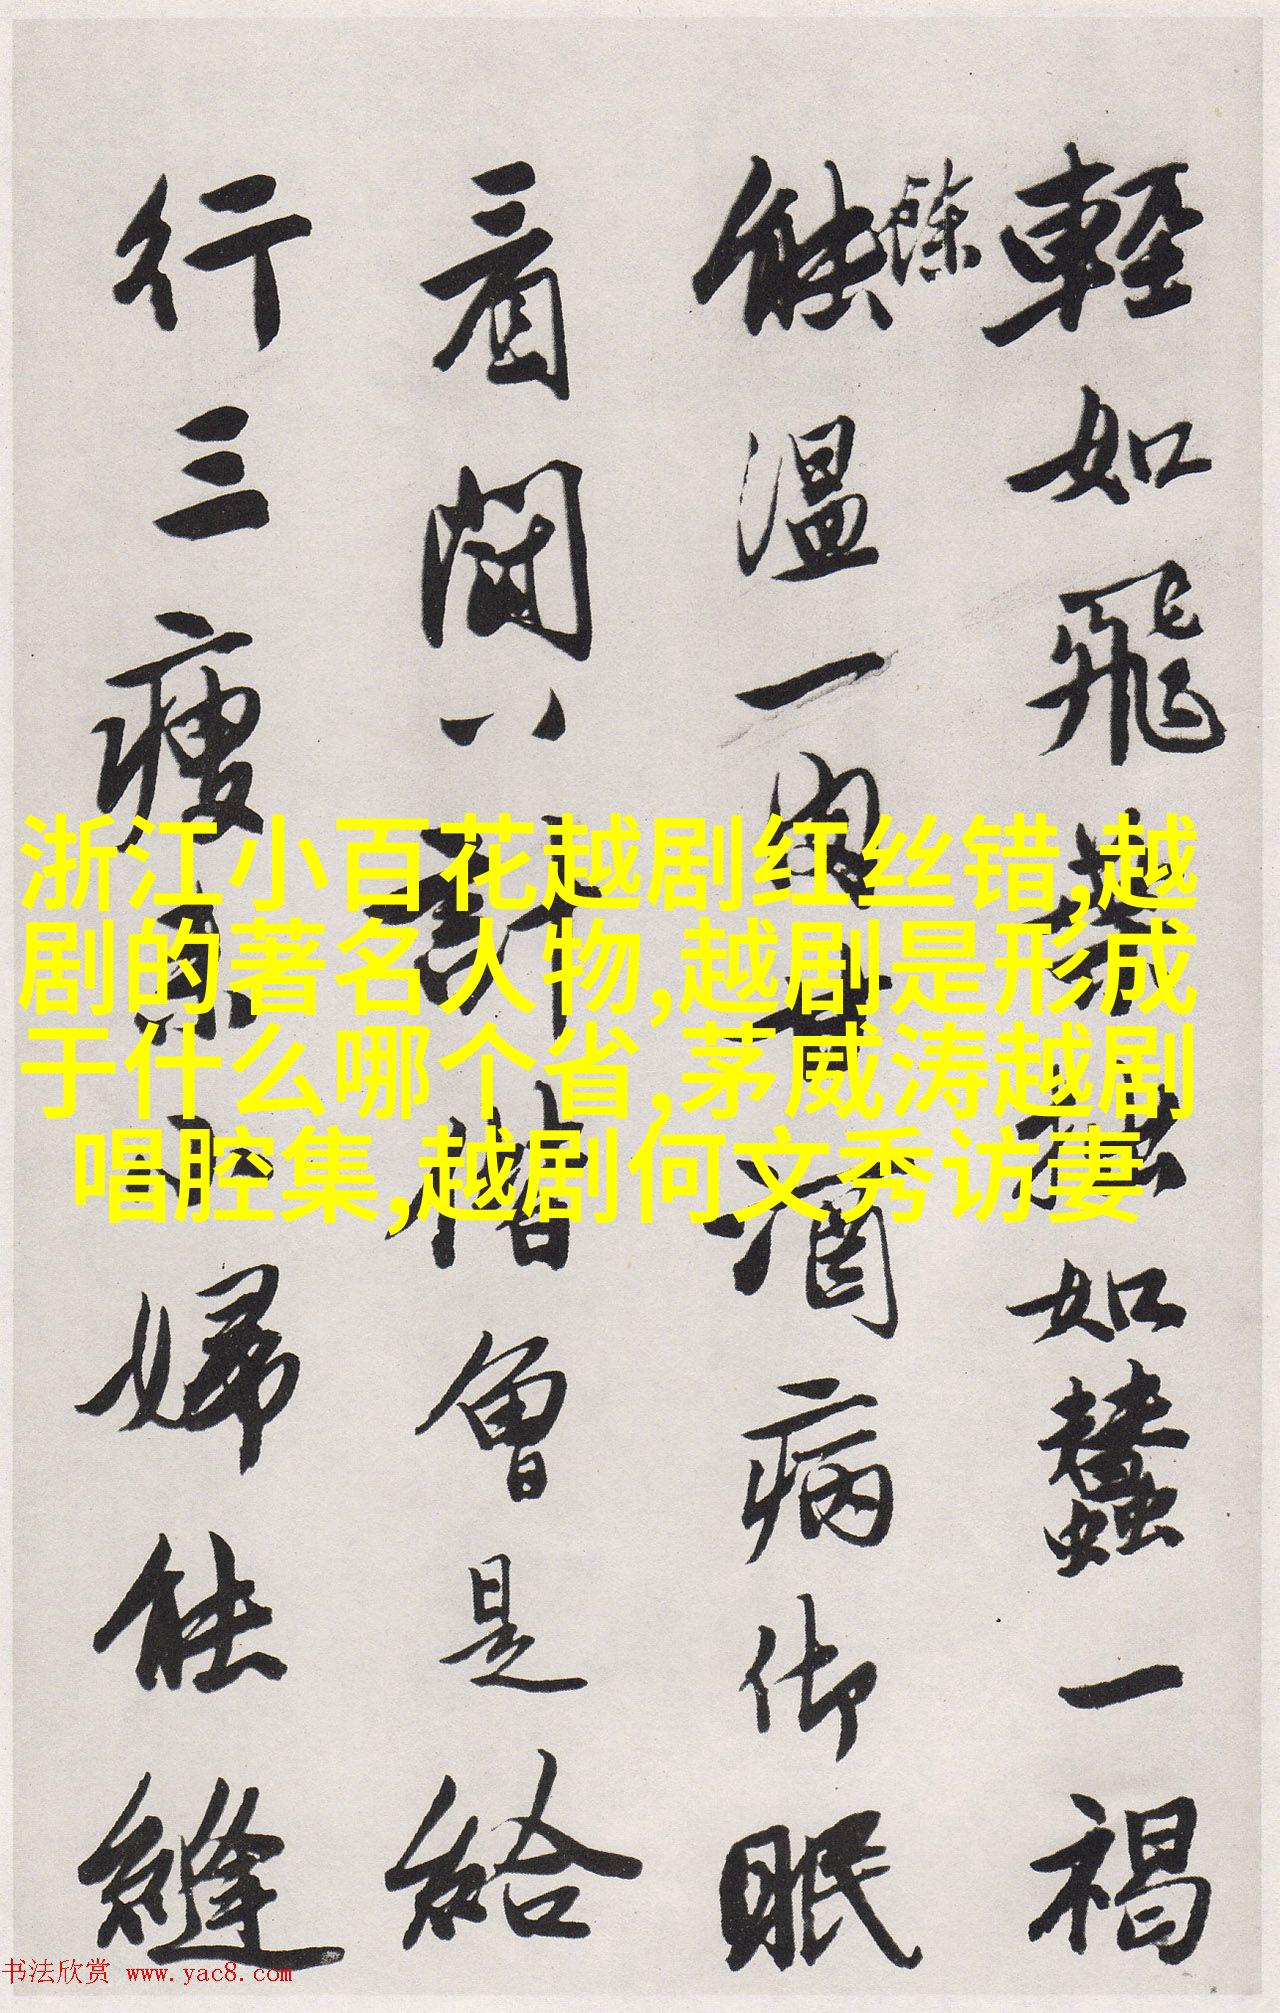 輕如飛如蠶一褐
能溫一酒病御眠
看闊八計偕曾是給
行三瘦婦能縫
浙江小百花越剧红丝错,越
剧的著名人物,越剧是形成
于什么哪个省,茅威涛越剧
唱腔集,越剧何文秀访妻
书法欣赏 www.yac8.com